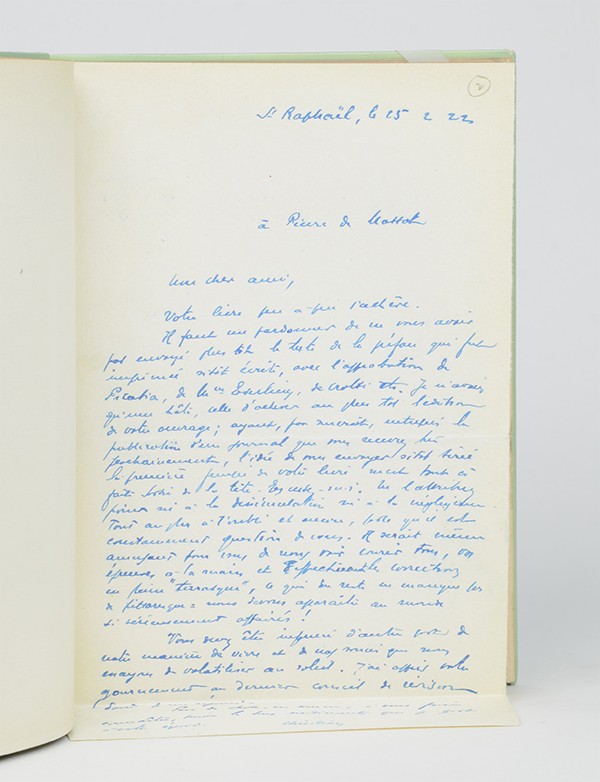 2
St Raphaël, le 15 2 22
à Pierre de Massot
Mon cher ami,
Votre livre peu-à-peu s'achève.
Il faut me pardonner de ne vous avoir
pas envoyé plus tôt le texte de la préface qui fut
imprimée sitôt écrite, avec l'approbation de
Picabia, de Mme Everling, de Crotti etc. Je n'avais
qu'une hâte, celle d'activer au plus tôt l'édition
de votre ouvrage; ayant, par surcroît, entrepris la
publication d'un journal que vous recevrez très
prochainement, l'idée de vous envoyer sitôt tirée
la première feuille de votre livre m'est tout à
fait sortie de la tête. Excusez-moi. Ne l'attribuez
point ni à la dissimulation ni à la négligence.
Tout au plus à l'oubli et encore, parce qu'il est
constamment question de vous. Il serait même
amusant pour vous de nous voir courir tous, vos
épreuves à la main, et effectuer les corrections
en pleine "terrasse", ce qui du reste ne manque pas
de pittoresque: nous devons apparaître au monde
si sérieusement affairés!
Vous devez être informé d'autre part de
notre manière de vivre et de nos soucis que nous
essayons de volatiliser au soleil. J'ai appris votre
ajournement au dernier conseil de révision
Christian